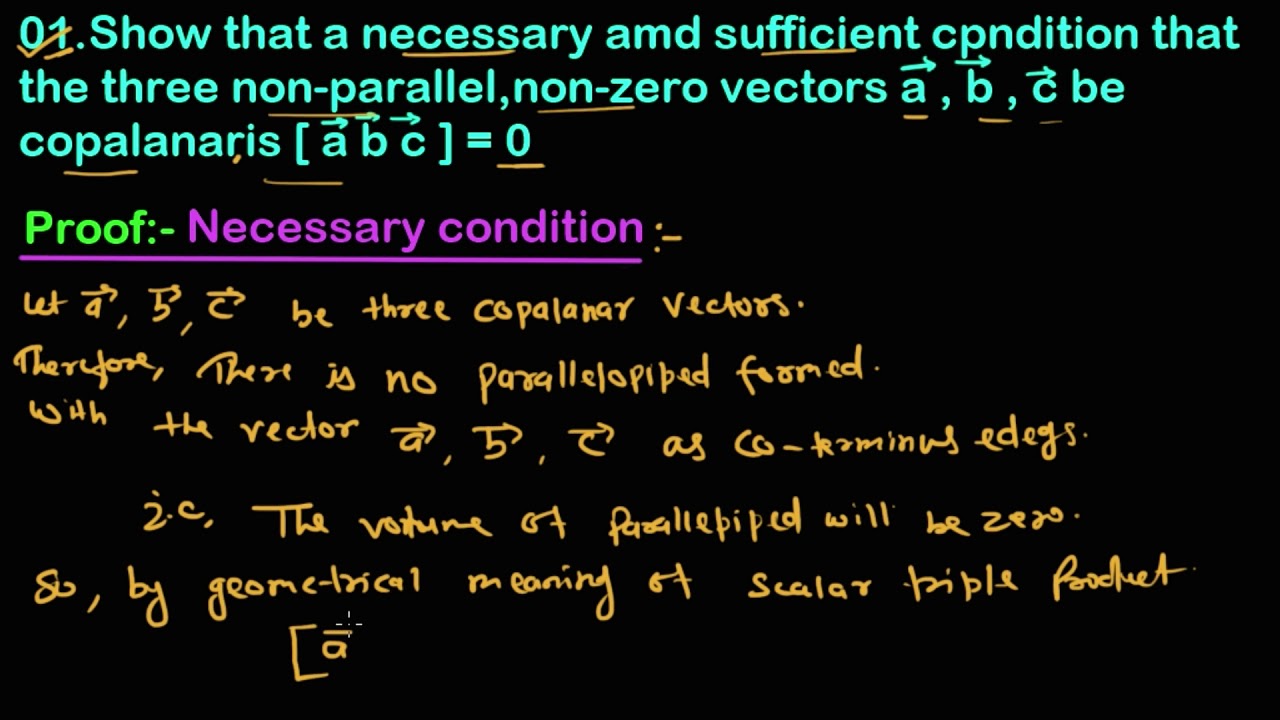 01.Show that a necessary amd sufficient cpndition that
the three non-parallel,non-zero vectors a⃗ , b⃗ , c⃗ be
copalanar,is [ a⃗ b⃗ c⃗ ] = 0
Proof:- Necessary condition :-
Let a⃗, b⃗, c⃗ be three copalanar vectors.
Therefore, There is no parallelopiped formed.
with the vector a⃗, b⃗, c⃗ as co-terminus edegs.
i.e, The volume of parallepiped will be zero.
So, by geometrical meaning of scalar triple product
[a⃗